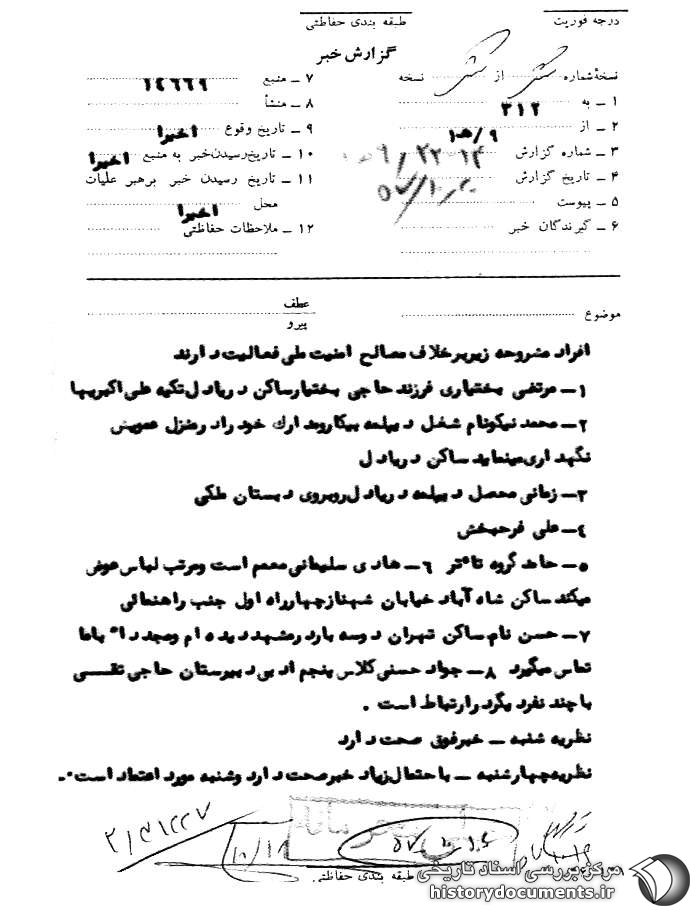 درجه فوریت
طبقه بندی حفاظتی
گزارش خبر
نسخهٔ شماره از نسخه
۱ ــ به ۳۱۲
۲ ــ از ۹/هـ۱
۳ ــ شماره گزارش
۴ ــ تاریخ گزارش
۵ ــ پیوست
۶ ــ گیرندگان خبر
۷ ــ منبع ۱۴۶۶۹
۸ ــ منشأ
۹ ــ تاریخ وقوع اخیرا
۱۰ ــ تاریخ رسیدن خبر به منبع اخیرا
۱۱ ــ تاریخ رسیدن خبر برهبر عملیات
محل اخیرا
۱۲ ــ ملاحظات حفاظتی
موضوع
عطف
پیرو
افراد مشروحه زیر برخلاف مصالح امنیت ملی فعالیت دارند
۱ــ مرتضی بختیاری فرزند حاجی بختیار ساکن دریادل تکیه علی اکبریها
۲ــ محمد نیکونام شغل دیپلمه بیکار ومدارك خود را در منزل عمویش
نگهداری مینماید ساکن دریادل
۳ــ زمانی محصل دیپلمه دریادل روبروی دبستان ملکی
۴ــ علی فرحبخش
۵ــ حامد گروه تاتر ۶ــ هادی سلیمانی معمم است ومرتب لباس عوض
میکند ساکن شاه آباد خیابان شهناز چهارراه اول جنب راهنمائی
۷ــ حسن نام ساکن تهران دوسه بار در مشهد دیده ام ومجددا" باما
تماس میگیرد ۸ــ جواد حسنی کلاس پنجم ادبی دبیرستان حاجی تقسی
با چند نفر دیگر در ارتباط است .
نظریه شنبه ــ خبر فوق صحت دارد
نظریه چهارشنبه ــ با احتمال زیاد خبر صحت دارد وشنبه مورد اعتماد است .
طبقه بندی حفاظتی
مرکز بررسی اسناد تاریخی
historydocuments.ir